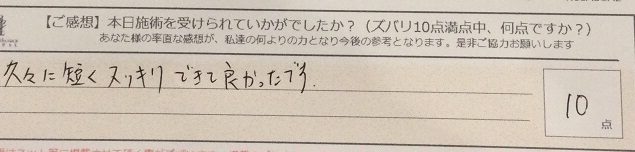 【ご感想】本日施術を受けられていかがでしたか？（ズバリ10点満点中、何点ですか？）
あなた様の率直な感想が、私達の何よりの力となり今後の参考となります。是非ご協力お願いします
久々に短くスッキリできて良かったです.
10
点